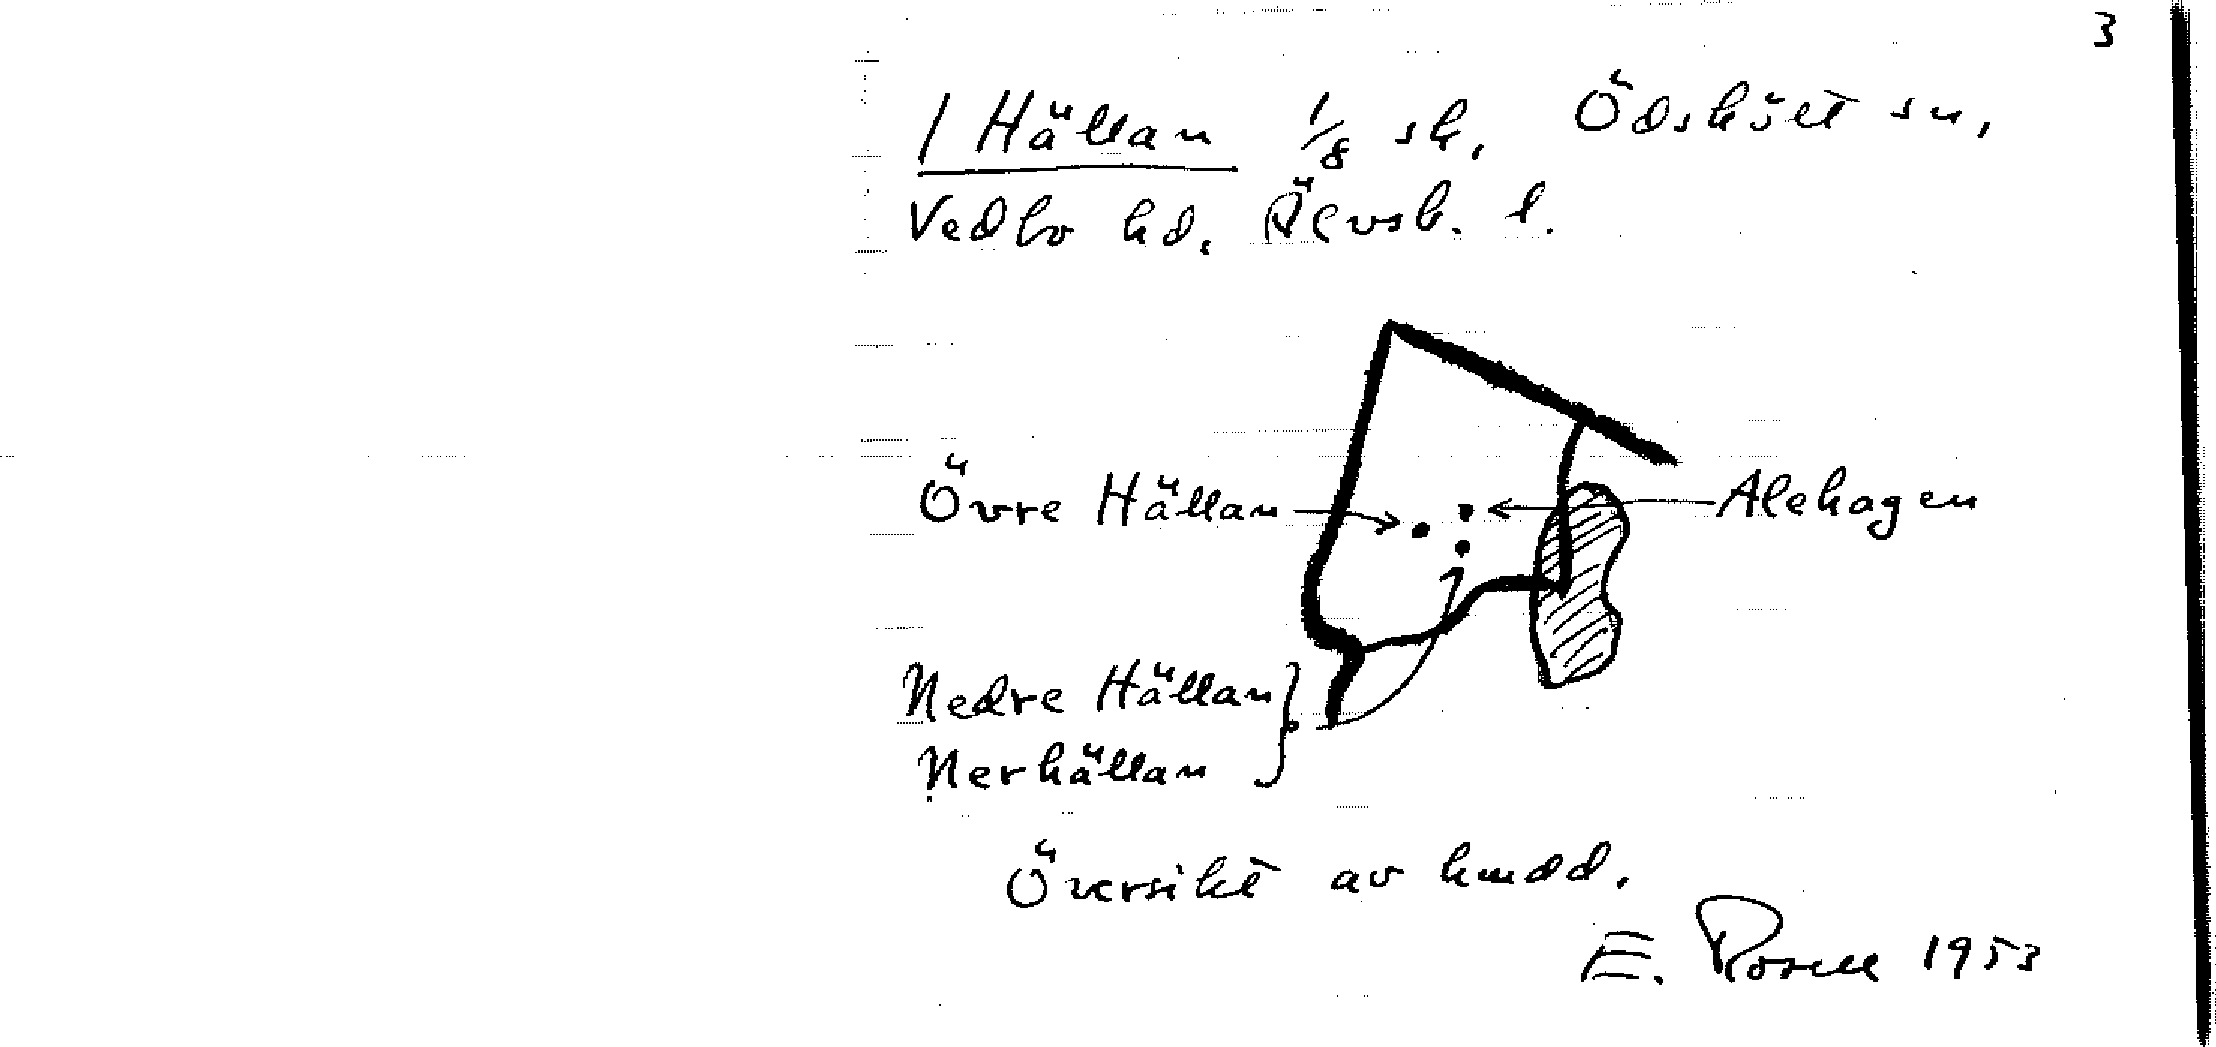 3
1 Hällan 1/8 sk, Ödskölt sn,
Vedbo hd. Älvsb. l.
Övre Hällan
Alehagen
Nedre Hällan
Nerhällan
Översikt av kmdd.
E. Rosell 1953